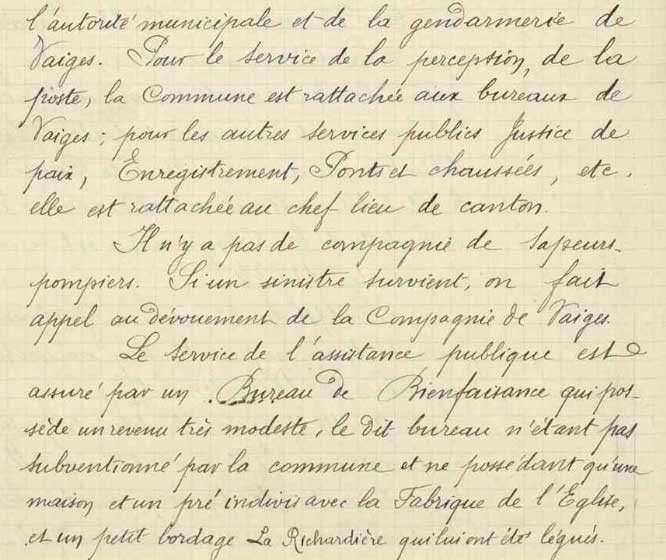 l'autorité municipale et de la gendarmerie de
Vaiges. Pour le service de la perception, de la
poste, la Commune est rattachée aux bureaux de
Vaiges ; pour les autres services publics Justice de
paix, Enregistrement, Ponts et chaussées, etc.
elle est rattachée au chef lieu de canton.
Il n'y a pas de compagnie de sapeurs-
pompiers. Si un sinistre survient, on fait
appel au dévouement de la Compagnie de Vaiges.
Le service de l'assistance publique est
assuré par un Bureau de Bienfaisance qui pos-
sède un revenu très modeste, le dit bureau n'étant pas
subventionné par la commune et ne possédant qu'une
maison et un pré indivis avec la Fabrique de l'Église,
et un petit bordage La Richardière qui lui ont été légués.